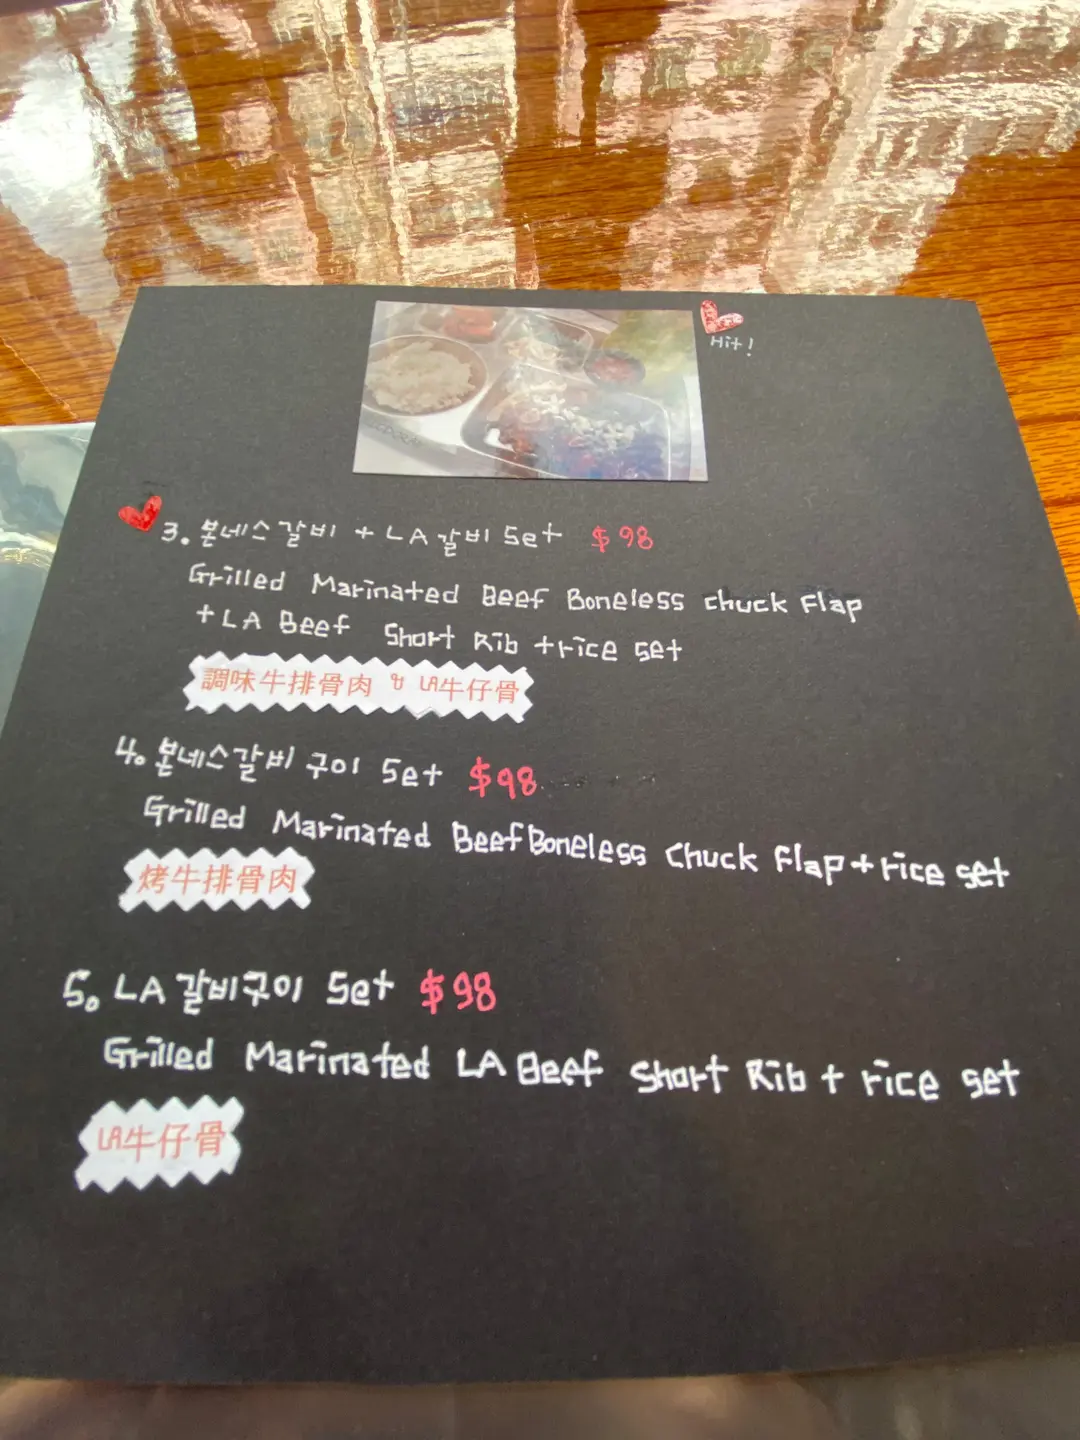 Hit!
3. 본네스갈비 + LA갈비 Set $98
Grilled Marinated Beef Boneless Chuck Flap
+ LA Beef Short Rib + rice set
調味牛排骨肉 & LA牛仔骨
4. 본네스갈비 구이 Set $98
Grilled Marinated Beef Boneless Chuck Flap + rice set
烤牛排骨肉
5. LA 갈비구이 Set $98
Grilled Marinated LA Beef Short Rib + rice set
LA牛仔骨